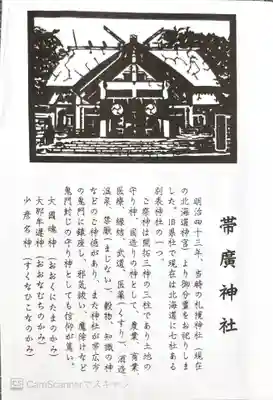 帯廣神社
明治四十三年、当時の札幌神社（現在
の北海道神宮）より御分霊をお祀りしま
した。旧県社で現在は北海道に七社ある
別表神社の一つ。
ご祭神は開拓三神の三柱であり土地の
守り神、国造りの神として、農業、商業、
医療、縁結、武道、医薬（くすり）、酒造
温泉、禁厭（まじない）、穀物、知識の神
などのご神徳があり、また神社が帯広市
の鬼門に鎮座し、邪気祓い、魔除けなど
鬼門封じの守り神としても信仰が篤い。
大國魂神（おおくにたまのかみ）
大那牟遅神（おおなむちのかみ）
少彦名神（すくなひこなのかみ）
CS CamScannerでスキャン